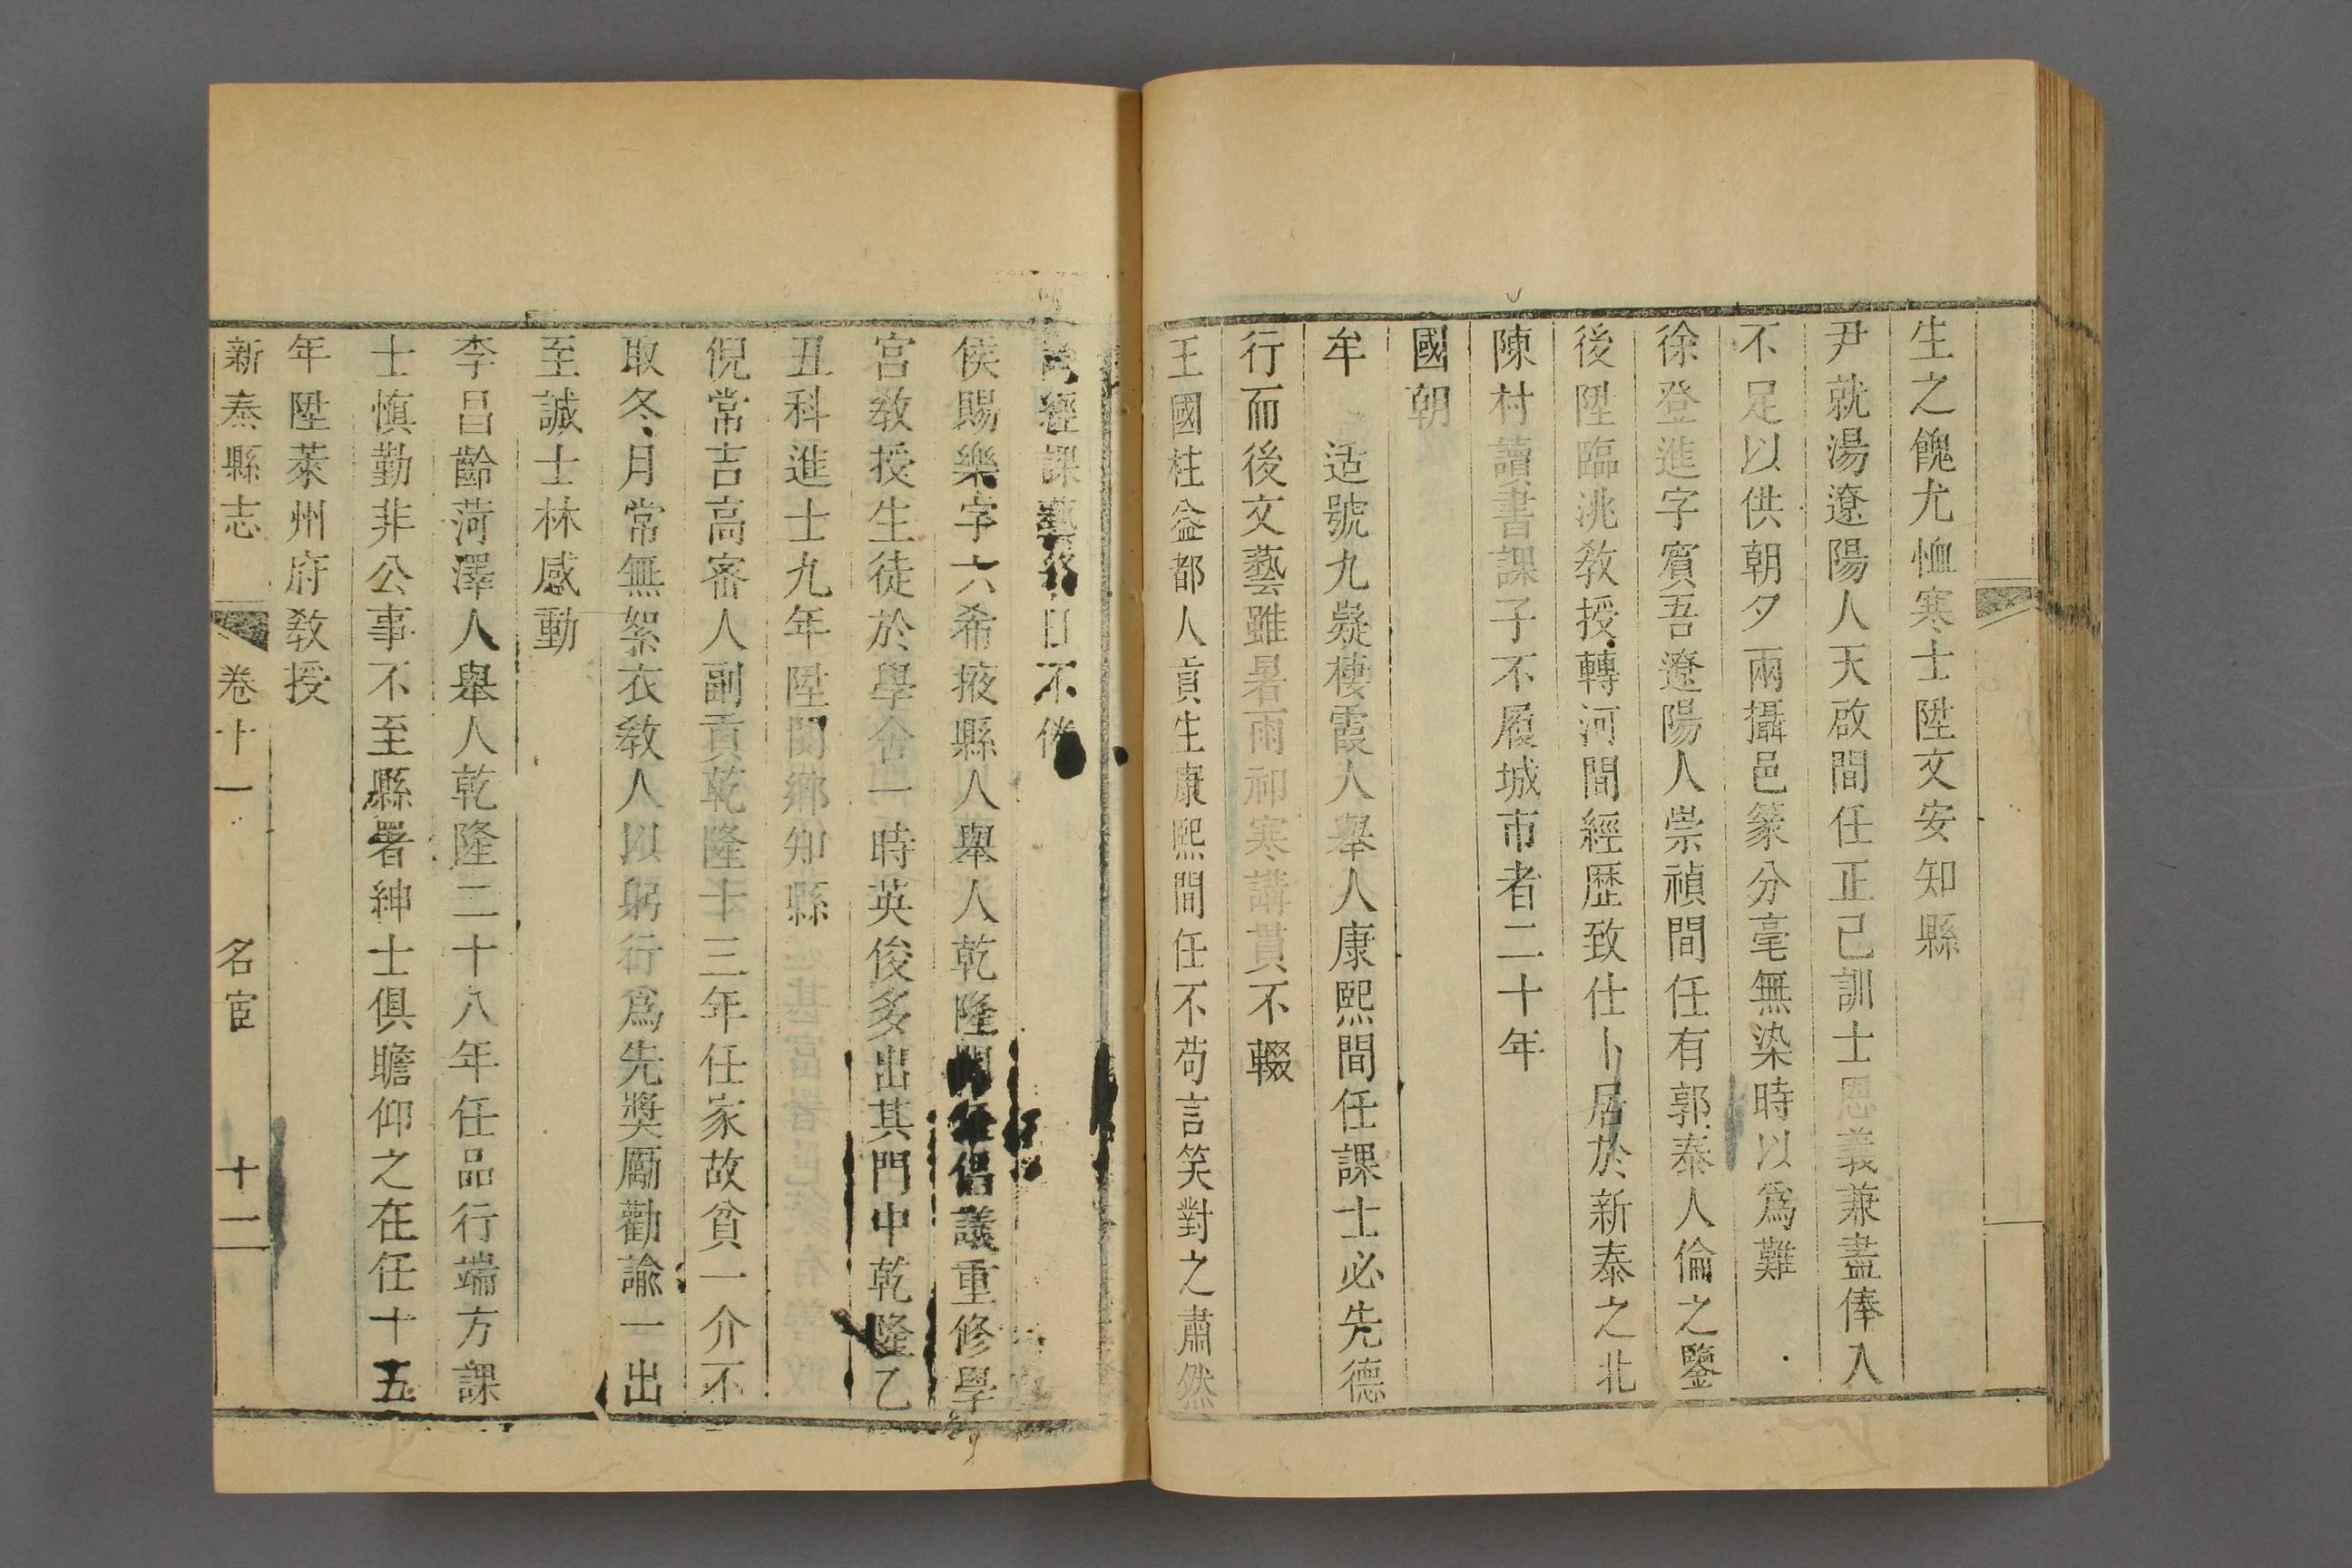 生之餽尤恤寒士陞文安知縣
尹就湯遼陽人天啟間任正己訓士恩義兼盡俸入
不足以供朝夕兩攝邑篆分毫無染時以爲難
徐登進字賓吾遼陽人崇禎間任有郭泰人倫之鑒
後陞臨洮敎授轉河間經歷致仕卜居於新泰之北
陳村讀書課子不履城市者二十年
國朝
牟适號九嶷棲霞人舉人康熙間任課士必先德
行而後文藝雖暑雨祁寒講貫不輟
王國柱益都人貢生康熙間任不苟言笑對之肅然
經課藝日不倦
侯賜樂字六希掖縣人舉人乾隆間任倡議重修學
宮敎授生徒於學舍一時英俊多出其門中乾隆乙
丑科進士九年陞閿鄉知縣
倪常吉高密人副貢乾隆十三年任家故貧一介不
取冬月常無絮衣敎人以躬行爲先奬勵勸諭一出
至誠士林感動
李昌齡菏澤人舉人乾隆二十八年任品行端方課
士慎勤非公事不至縣署紳士俱瞻仰之在任十五
年陞萊州府敎授
新泰縣志 卷十一 名宦 十一